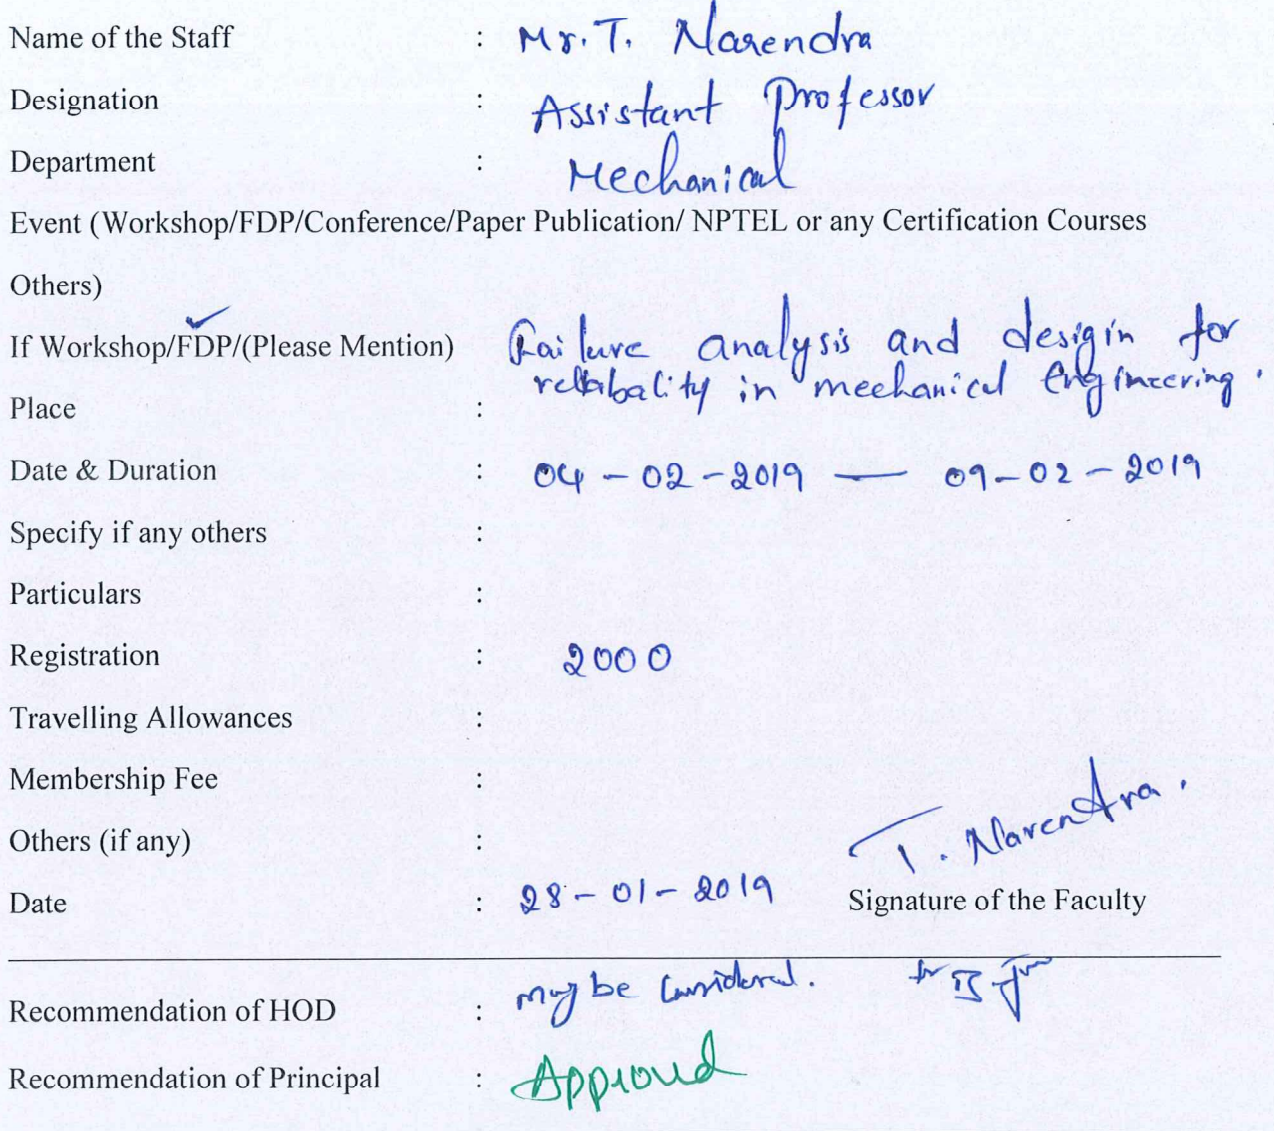 Name of the Staff : Mr. T. Narendra
Designation : Assistant Professor
Department : Mechanical
Event (Workshop/FDP/Conference/Paper Publication/ NPTEL or any Certification Courses
Others)
If Workshop/FDP/(Please Mention) Failure analysis and desigin for
reliabality in mechanical Engineering.
Place :
Date & Duration : 04-02-2019 — 09-02-2019
Specify if any others :
Particulars :
Registration : 2000
Travelling Allowances :
Membership Fee :
Others (if any) :
T. Narendra.
Date : 28-01-2019 Signature of the Faculty
Recommendation of HOD : may be Considered.
Recommendation of Principal : Approved